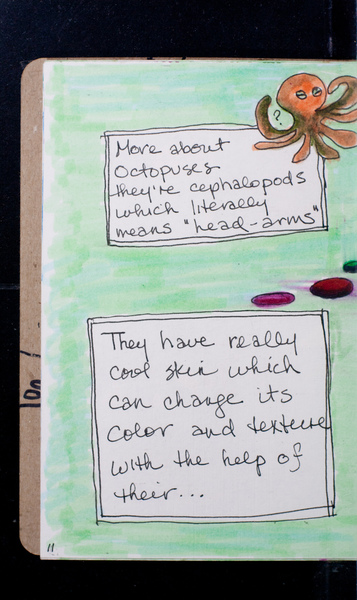 ?
More about
Octopuses
they're cephalopods
which literally
means "head-arms"
They have really
cool skin which
can change its
color and texture
with the help of
their...
11